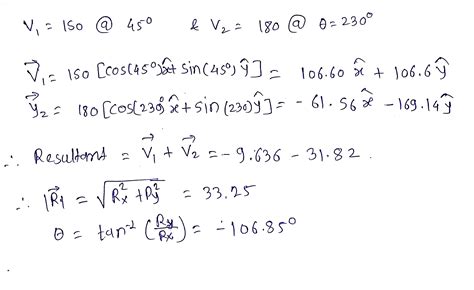 V₁ = 150 @ 45° & V₂ = 180 @ θ = 230°
V⃗₁ = 150 [cos(45°)x̂ + sin(45°) ŷ] = 106.60 x̂ + 106.6 ŷ
y⃗₂ = 180 [cos(230°) x̂ + sin (230) ŷ] = - 61.56 x̂ - 169.14 ŷ
∴ Resultant = V⃗₁ + V⃗₂ = - 9.636 - 31.82 .
∴ |R⃗| = √(Rx² + Ry²) = 33.25
θ = tan⁻¹ (Ry/Rx) = - 106.85°